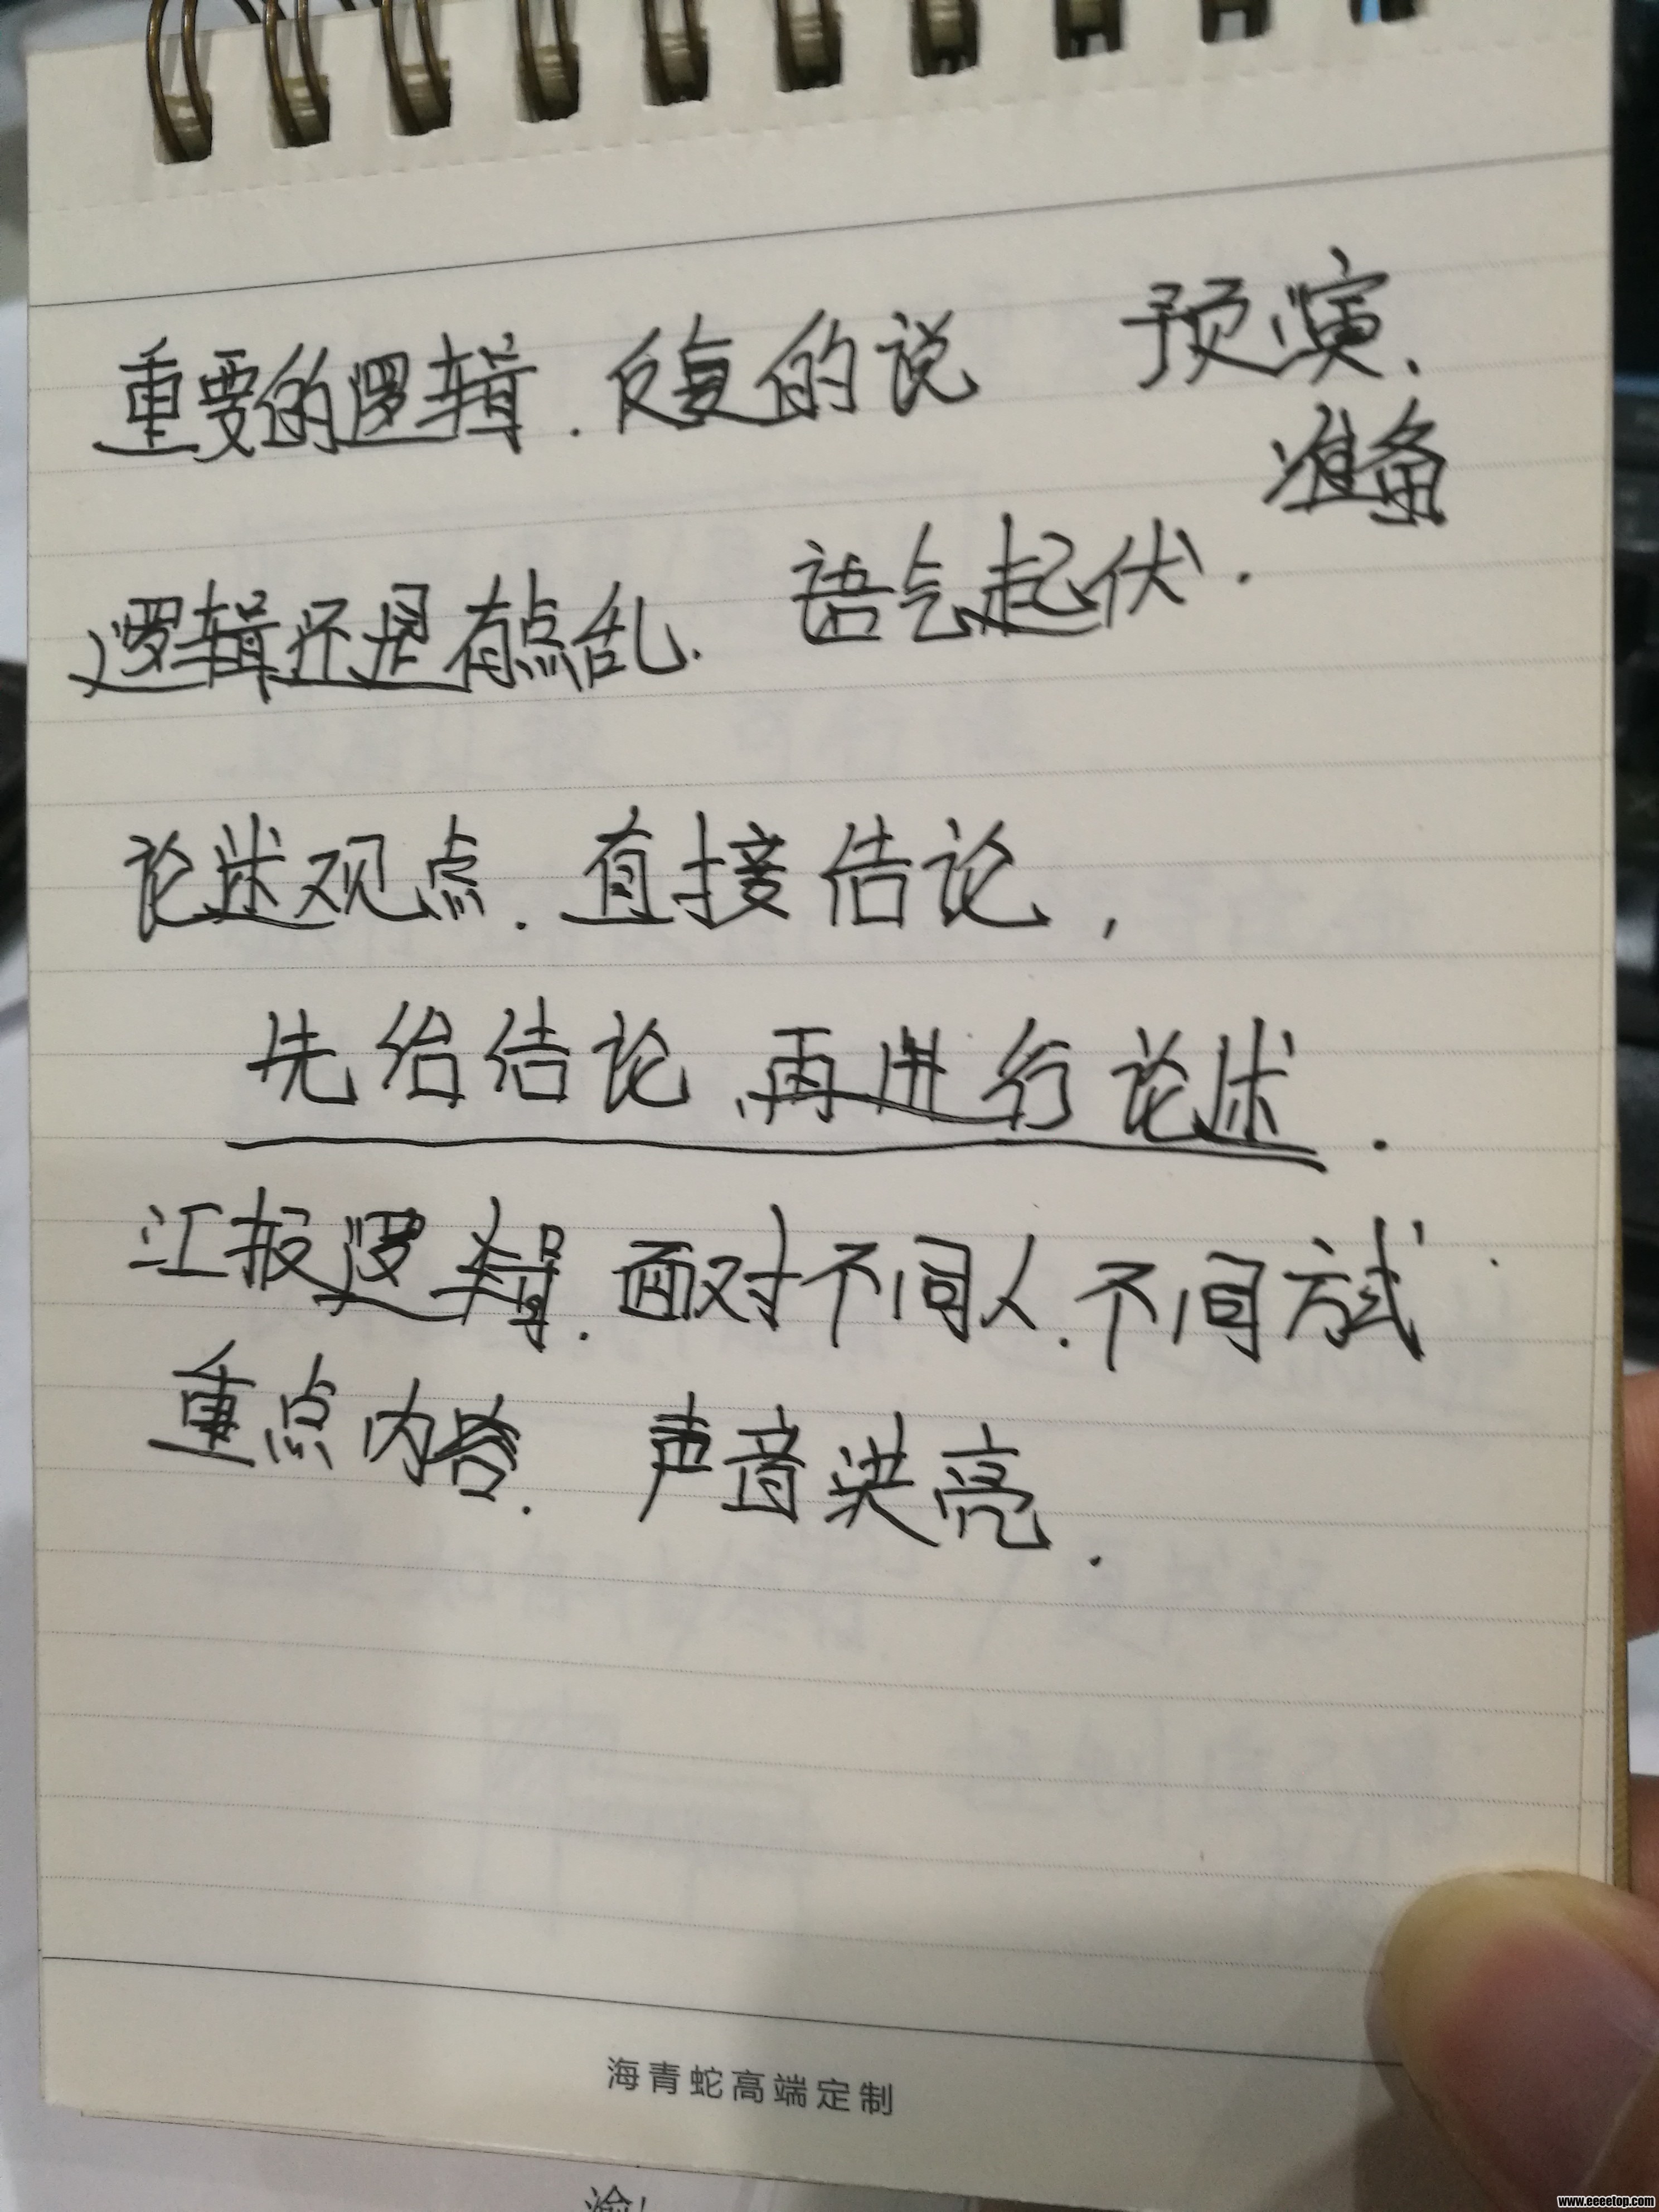 重要的逻辑.反复的说 预演、
准备
逻辑还是有点乱. 语气起伏.
论述观点.直接结论,
先给结论、再进行论述.
汇报逻辑.面对不同人.不同方式
重点内容. 声音洪亮.
海青蛇高端定制
www.eeeetop.com